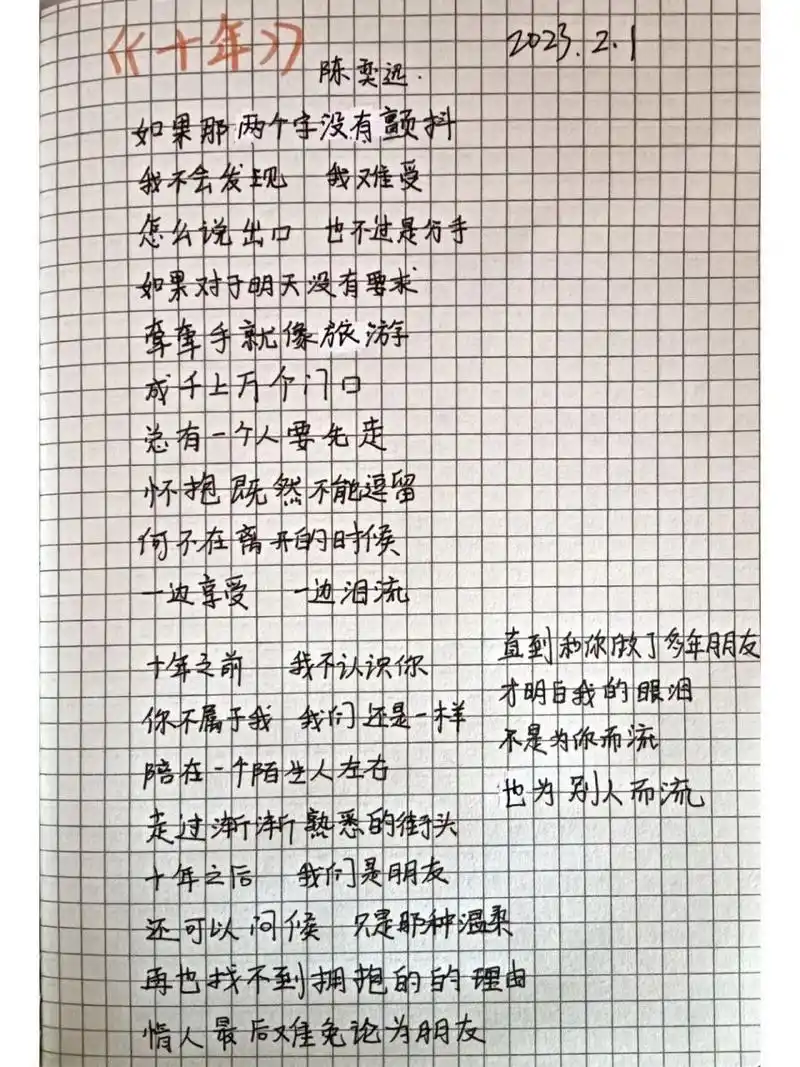 《十年》
2023.2.1
陈奕迅.
如果那两个字没有颤抖
我不会发现 我难受
怎么说出口 也不过是分手
如果对于明天没有要求
牵牵手就像旅游
成千上万个门口
总有一个人要先走
怀抱既然不能逗留
何不在离开的时候
一边享受 一边泪流
十年之前 我不认识你
你不属于我 我们还是一样
陪在一个陌生人左右
走过渐渐熟悉的街头
十年之后 我们是朋友
还可以问候 只是那种温柔
再也找不到拥抱的的理由
情人最后难免沦为朋友
直到和你做了多年朋友
才明白我的眼泪
不是为你而流
也为别人而流